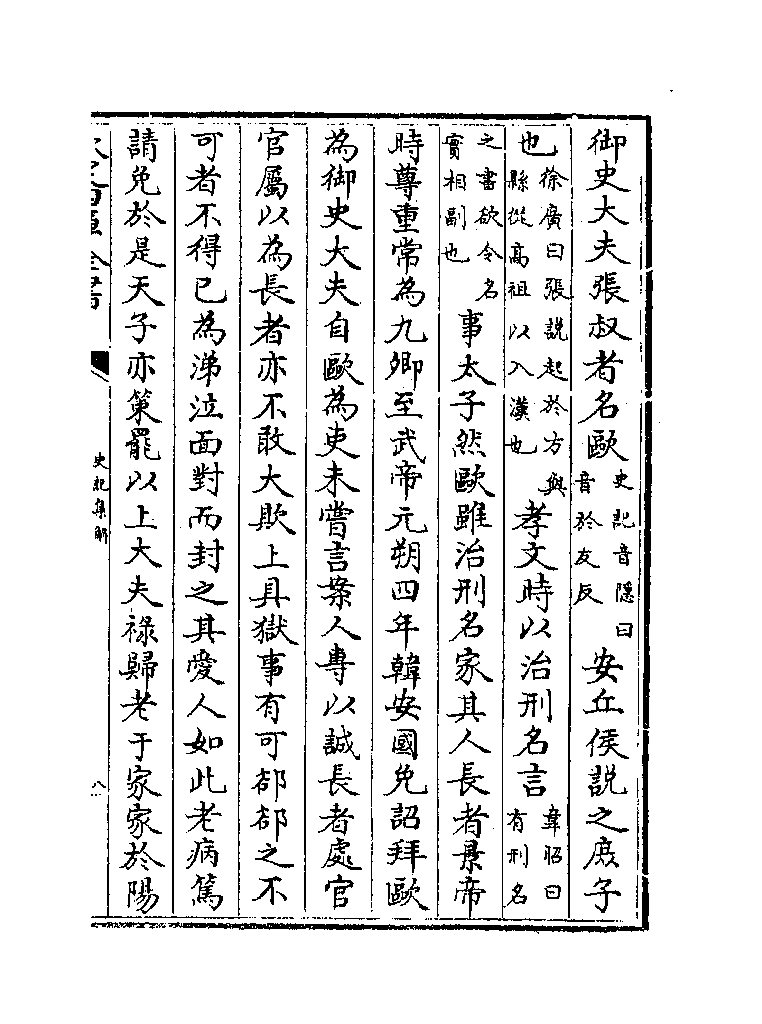 御史大夫張叔者名歐史記音隱曰音於友反安丘侯說之庶子
也徐廣曰張說起於方與縣從高祖以入漢也孝文時以治刑名言韋昭曰有刑名
之書欲令名實相副也事太子然歐雖治刑名家其人長者景帝
時尊重常為九卿至武帝元朔四年韓安國免詔拜歐
為御史大夫自歐為吏未嘗言案人專以誠長者處官
官屬以為長者亦不敢大欺上具獄事有可郤郤之不
可者不得已為涕泣面對而封之其愛人如此老病篤
請免於是天子亦策罷以上大夫祿歸老于家家於陽
史記集解
八